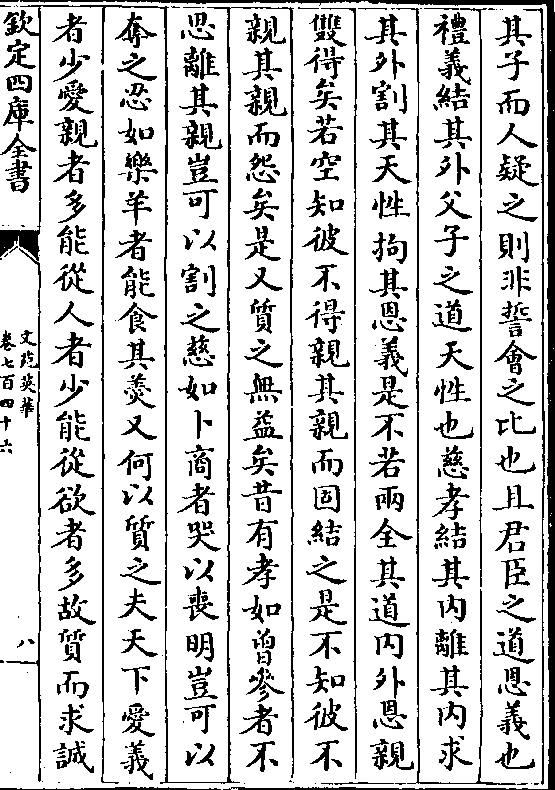 其子而人疑之則非誓會之比也且君臣之道恩義也
禮義結其外父子之道天性也慈孝結其内離其内求
其外割其天性拘其恩義是不若兩全其道内外恩親
雙得矣若空知彼不得親其親而固結之是不知彼不
親其親而怨矣是又質之無益矣昔有孝如曾參者不
思離其親豈可以割之慈如卜商者哭以喪明豈可以
奪之忍如樂羊者能食其羹又何以質之夫天下愛義
者少愛親者多能從人者少能從欲者多故質而求誠
欽定四庫全書
文苑英華
卷七百四十六
八